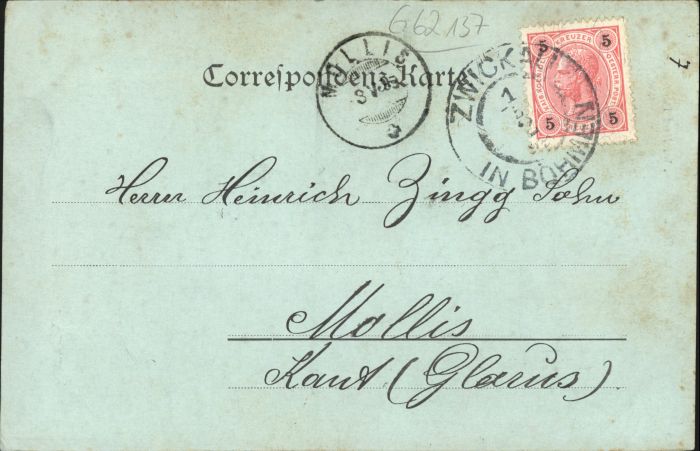 G 62 157
7
Correspondenz-Karte.
MOLLIS
ZWICKAU
IN BÖHMEN
5 KREUZER 5
5 5
Herrn Heinrich Zingg Sohn
Mollis
Kant (Glarus).